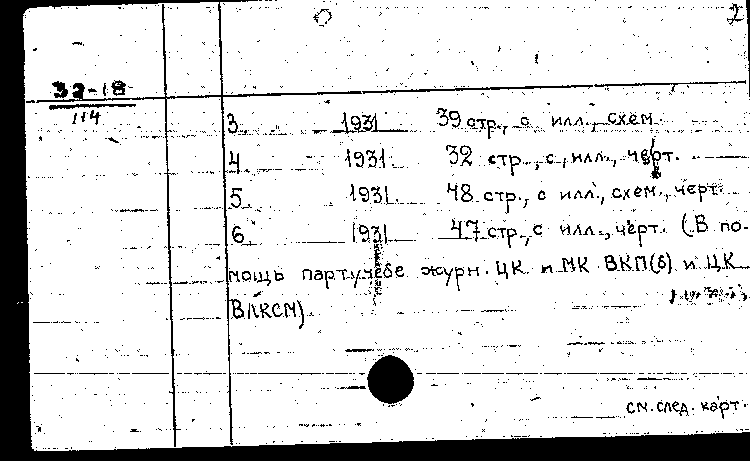 2
32-18
114
3 1931 39 стр., с илл., схем.
4 1931. 32 стр., с илл., черт.
5 1931. 48 стр., с илл., схем., черт.
6 1931 47 стр., с илл., черт. (В по-
мощь партучебе журн. ЦК и МК ВКП(б) и ЦК
ВЛКСМ).
см. след. карт.